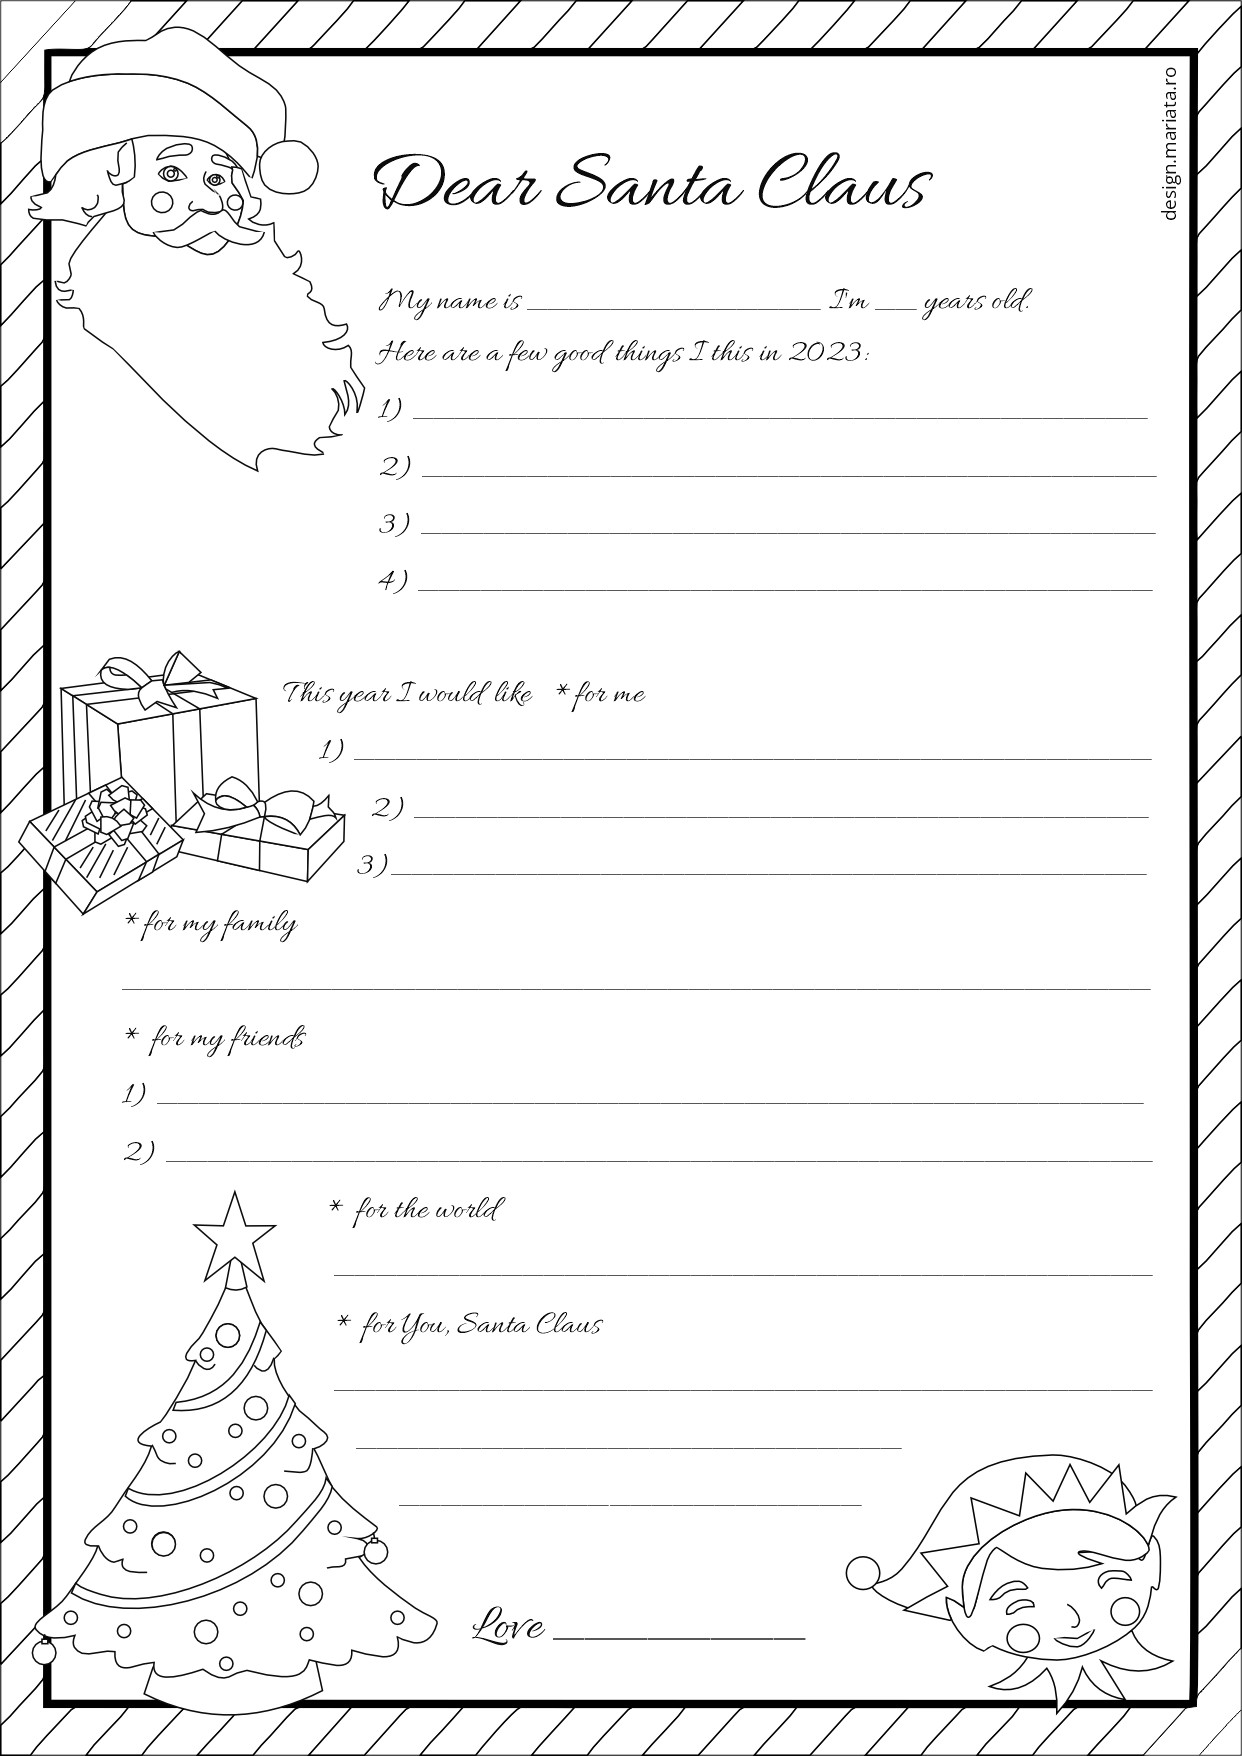 design.mariata.ro
Dear Santa Claus
My name is ____________________ I'm ___ years old.
Here are a few good things I this in 2023:
1) ____________________
2) ____________________
3) ____________________
4) ____________________
This year I would like * for me
1) ____________________
2) ____________________
3) ____________________
* for my family
____________________
* for my friends
1) ____________________
2) ____________________
* for the world
____________________
* for You, Santa Claus
____________________
____________________
____________________
Love ____________